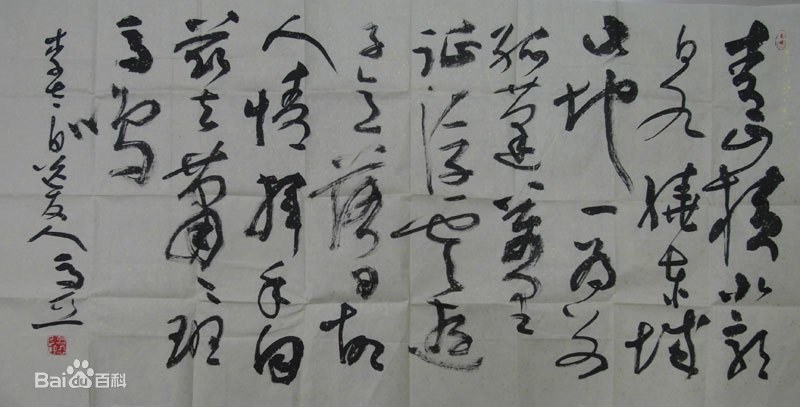 青山横北郭
白水繞东城
此地一为别
孤蓬萬里
征浮雲遊
子意落日故
人情揮手自
兹去萧々班
马鸣
李太白送友人
Bai百科